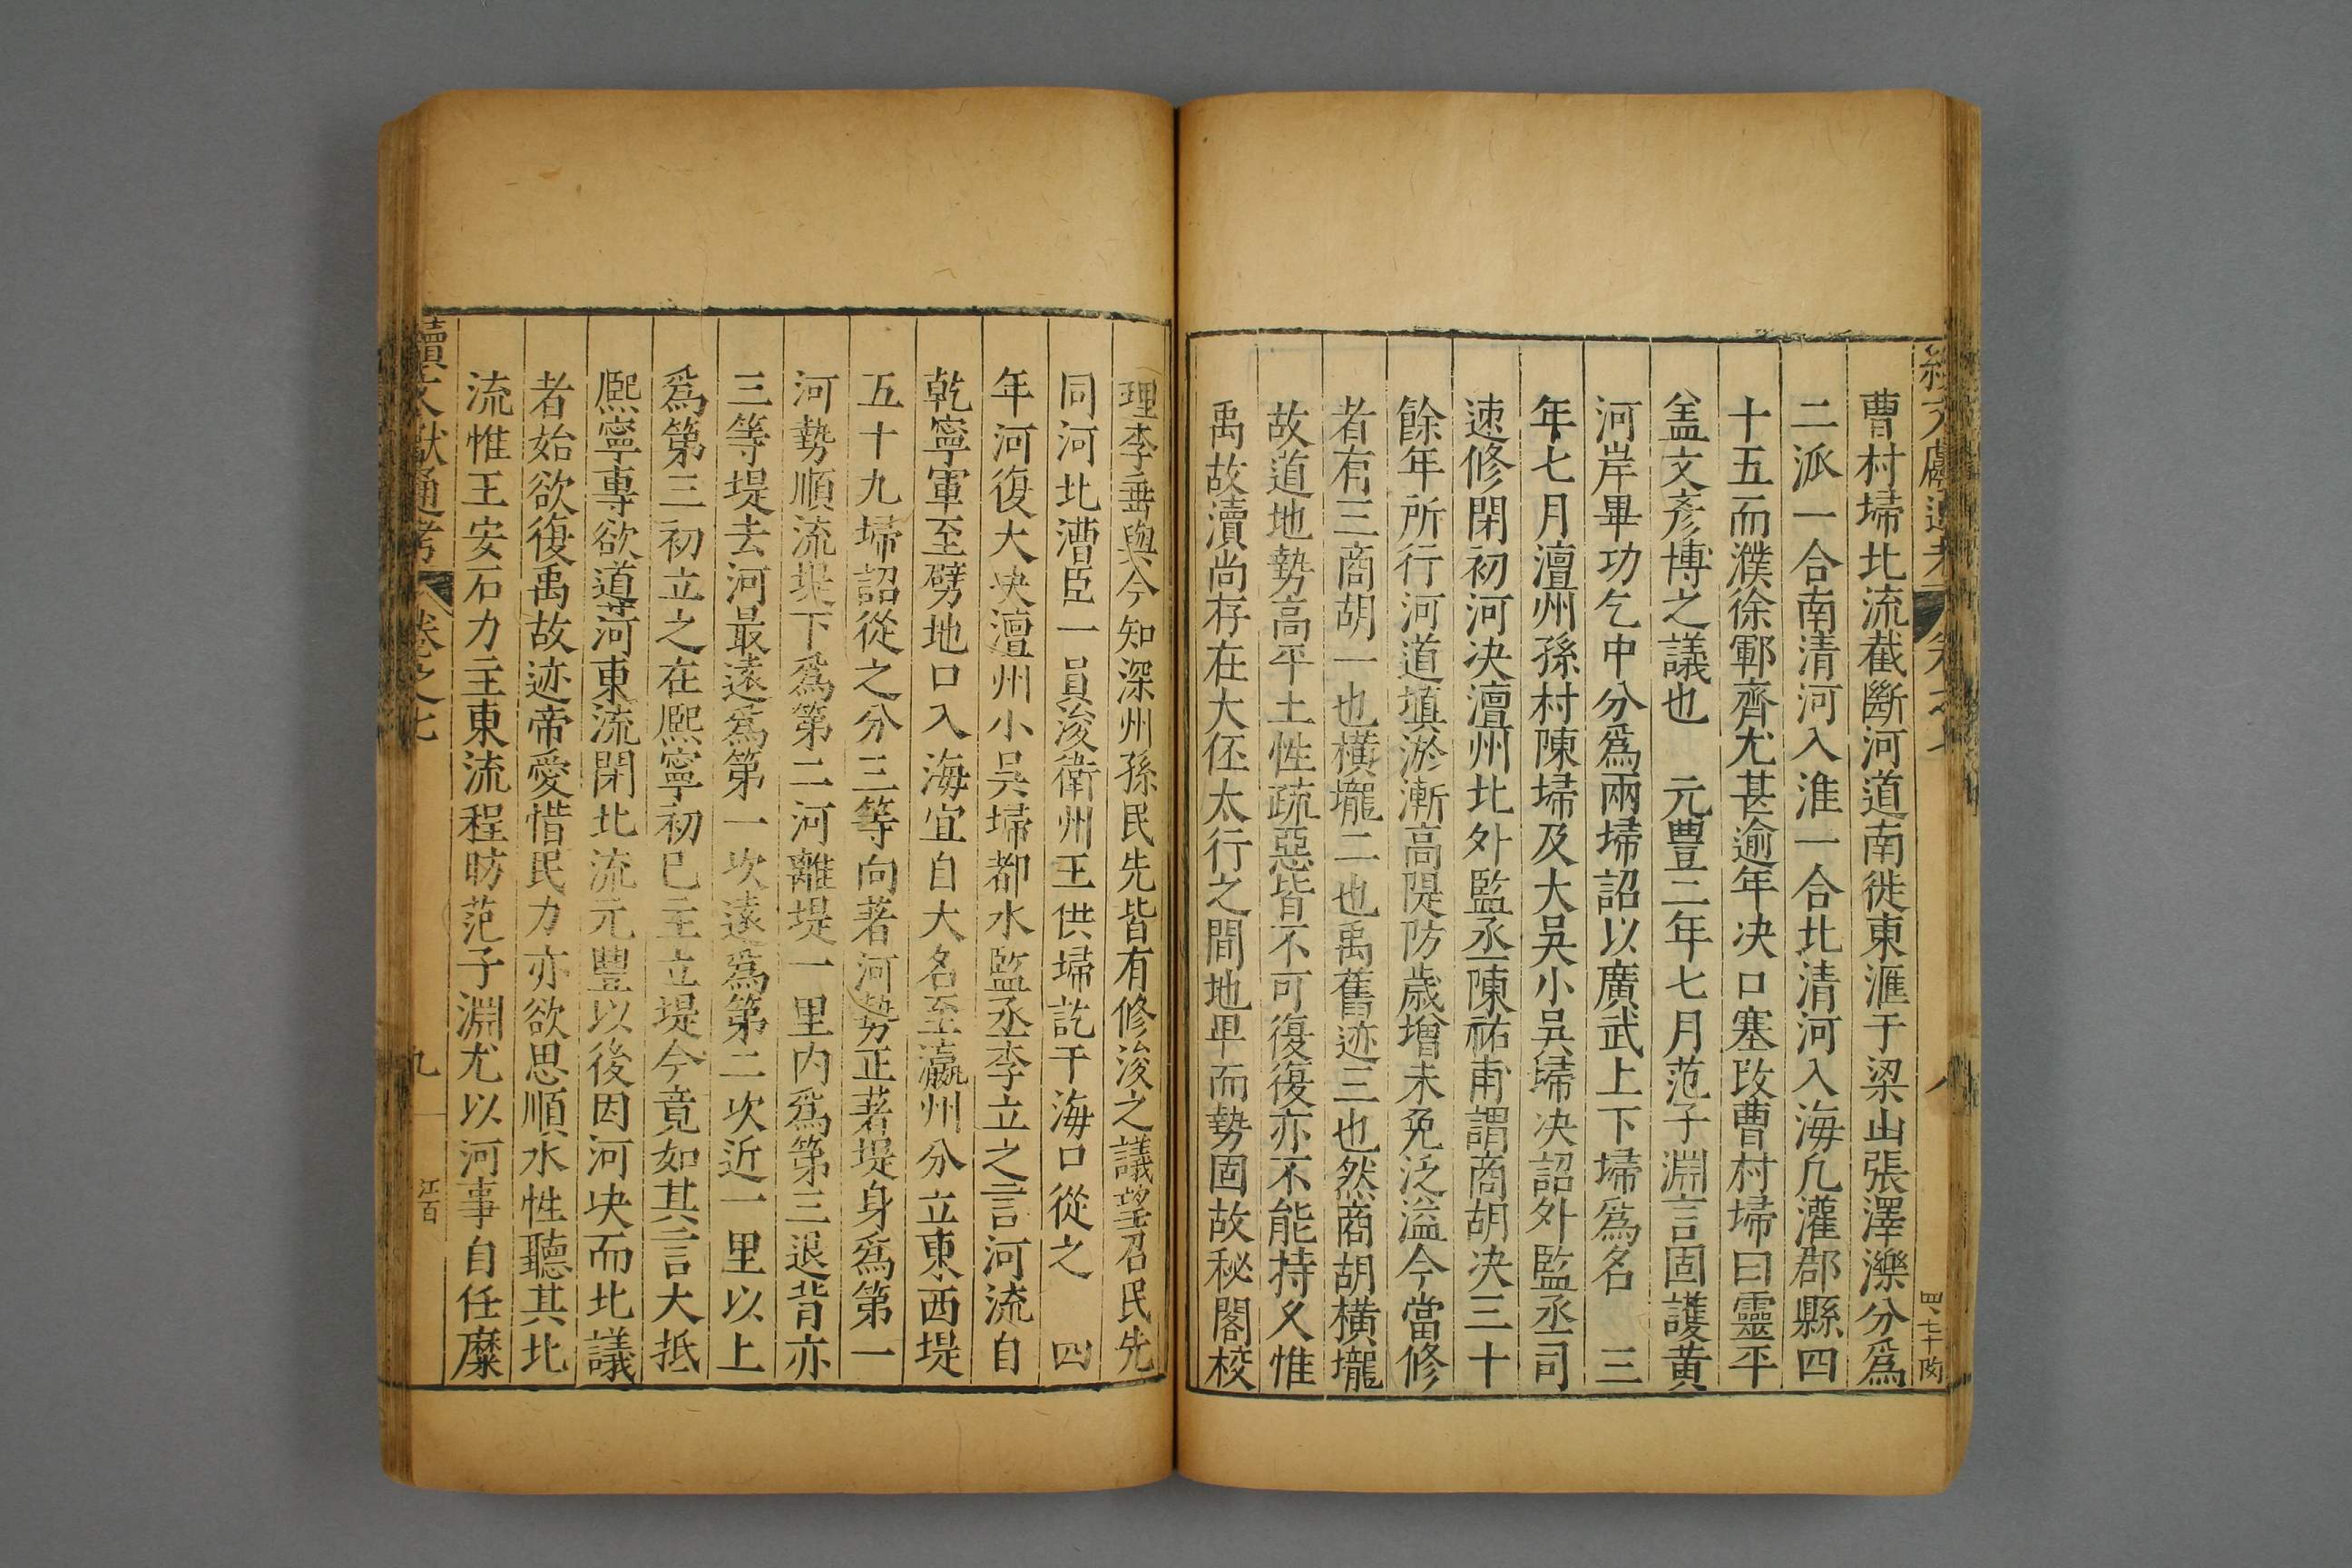 曹村埽北流截斷河道南徙東滙于梁山張澤濼分爲
二派一合南清河入淮一合北清河入海凢灌郡縣四
十五而濮徐鄆齊尤甚逾年决口塞改曹村埽曰靈平
盖文彥博之議也　元豊二年七月范子淵言固護黄
河岸畢功乞中分爲兩埽詔以廣武上下埽爲名　三
年七月澶州孫村陳埽及大吳小吳埽决詔外監丞司
速修閉初河决澶州北外監丞陳祐甫謂商胡决三十
餘年所行河道填淤漸高隄防歲增未免泛溢今當修
者有三商胡一也橫壠二也禹舊迹三也然商胡橫壠
故道地勢高平土性疏惡皆不可復復亦不能持乆惟
禹故瀆尚存在大伾太行之間地卑而勢固故秘閣校
理李垂與今知深州孫民先皆有修浚之議望召民先
同河北漕臣一員浚衛州王供埽訖于海口從之　四
年河復大决澶州小吳埽都水監丞李立之言河流自
乾寧軍至劈地口入海宜自大名至瀛州分立東西堤
五十九埽詔從之分三等向著河勢正著堤身爲第一
河勢順流堤下爲第二河離堤一里内爲第三退背亦
三等堤去河最遠爲第一次遠爲第二次近一里以上
爲第三初立之在熈寧初已主立堤今竟如其言大抵
熈寧專欲導河東流閉北流元豊以後因河决而北議
者始欲復禹故迹帝愛惜民力亦欲思順水性聽其北
流惟王安石力主東流程昉范子淵尤以河事自任糜
續文獻通考　卷之七　九　江百